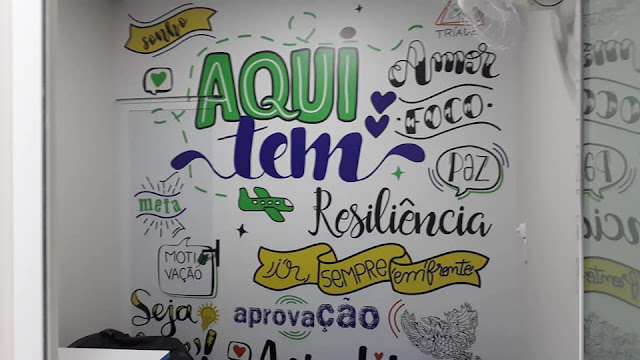 sonho
TRÍADE
AQUI
tem
Amor
FOCO
PAZ
meta
Resiliência
MOTI
VAÇÃO
ir SEMPRE em frente
Seja
aprovAÇÃO